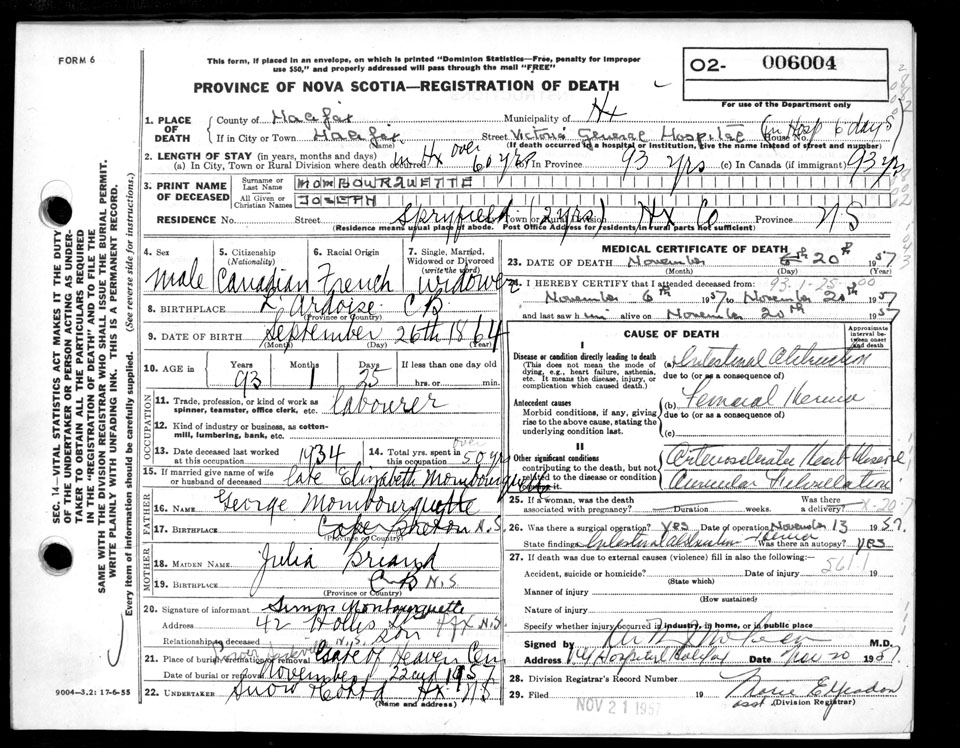 FORM 6
This form, if placed in an envelope, on which is printed "Dominion Statistics—Free, penalty for improper
use $50," and properly addressed will pass through the mail "FREE"
O2- 006004
For use of the Department only
PROVINCE OF NOVA SCOTIA—REGISTRATION OF DEATH
1. PLACE OF DEATH
County of Halifax Municipality of Hx
If in City or Town Halifax Street Victoria General Hospital House No. (in Hosp 6 days)
(Name) (If death occurred in a hospital or institution, give the name instead of street and number)
2. LENGTH OF STAY (in years, months and days)
(a) In City, Town or Rural Division where death occurred in Hx over 60 yrs In Province 93 yrs (c) In Canada (if immigrant) 93 yrs
3. PRINT NAME OF DECEASED
Surname or Last Name MOMBOURQUETTE
All Given or Christian Names JOSEPH
RESIDENCE No. Street Spryfield (2 yrs) Town or Rural Division Hx Co Province NS
(Residence means usual place of abode. Post Office Address for residents in rural parts not sufficient)
4. Sex
male
5. Citizenship (Nationality)
Canadian
6. Racial Origin
French
7. Single, Married, Widowed or Divorced (write the word)
widower
8. BIRTHPLACE L'Ardoise C.B.
(Province or Country)
9. DATE OF BIRTH September 26th 1864
(Month) (Day) (Year)
10. AGE in Years 93 Months 1 Days 25 If less than one day old
hrs. or min.
OCCUPATION
11. Trade, profession, or kind of work as spinner, teamster, office clerk, etc. labourer
12. Kind of industry or business, as cotton-mill, lumbering, bank, etc.
13. Date deceased last worked at this occupation 1934
14. Total yrs. spent in this occupation over 50 yrs
15. If married give name of wife or husband of deceased late Elizabeth Mombourquette
FATHER
16. NAME George Mombourquette
17. BIRTHPLACE Cape Breton N.S.
(Province or Country)
MOTHER
18. MAIDEN NAME Julia Briand
19. BIRTHPLACE C.B. N.S.
(Province or Country)
20. Signature of informant Simon Mombourquette
Address 42 Hollis St Hfx N.S.
Relationship to deceased son N.S.
21. Place of burial, cremation or removal Lower Sackville Gate of Heaven Cem
Date of burial or removal November 22nd 195
22. UNDERTAKER Snow & Co Ltd Hx NS
(Name and address)
MEDICAL CERTIFICATE OF DEATH
23. DATE OF DEATH November 20th 1957
(Month) (Day) (Year)
93-1-25-00
I HEREBY CERTIFY that I attended deceased from:
November 6th 1957 to November 20th 1957
and last saw him alive on November 20th 1957
CAUSE OF DEATH
Approximate interval between onset and death
I
Disease or condition directly leading to death
(This does not mean the mode of dying, e.g., heart failure, asthenia, etc. It means the disease, injury, or complication which caused death.)
(a) Intestinal Obstruction
due to (or as a consequence of)
Antecedent causes
Morbid conditions, if any, giving rise to the above cause, stating the underlying condition last.
(b) Femoral Hernia
due to (or as a consequence of)
(c)
II
Other significant conditions
contributing to the death, but not related to the disease or condition causing it.
Arteriosclerotic Heart Disease
Auricular Fibrillation
25. If a woman, was the death associated with pregnancy? Duration weeks. Was there a delivery? X-20-7
26. Was there a surgical operation? yes Date of operation November 13 1957
State findings Intestinal Obstruction Hernia Was there an autopsy? yes
27. If death was due to external causes (violence) fill in also the following:
Accident, suicide or homicide? Date of injury 19
(State which)
5611
Manner of injury
(How sustained)
Nature of injury
Specify whether injury occurred in industry, in home, or in public place
Signed by M.D.
Address VG Hospital Halifax Date Nov 20 1957
28. Division Registrar's Record Number
29. Filed NOV 21 1957 19
asst. (Division Registrar)
SEC. 14—VITAL STATISTICS ACT MAKES IT THE DUTY
OF THE UNDERTAKER OR PERSON ACTING AS UNDER-
TAKER TO OBTAIN ALL THE PARTICULARS REQUIRED
IN THE "REGISTRATION OF DEATH" AND TO FILE THE
SAME WITH THE DIVISION REGISTRAR WHO SHALL ISSUE THE BURIAL PERMIT.
WRITE PLAINLY WITH UNFADING INK. THIS IS A PERMANENT RECORD.
Every item of information should be carefully supplied. (See reverse side for instructions.)
9004-3.2: 17-6-55